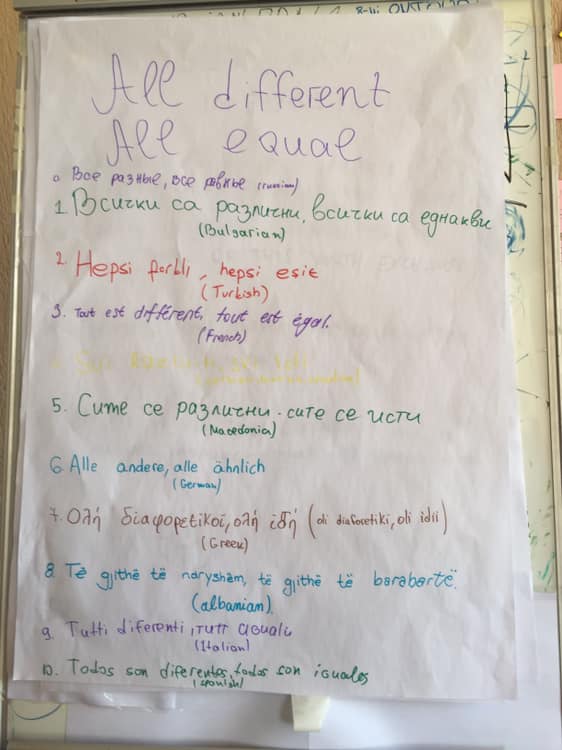 All different
All equal
0. Все разные, все равные (russian)
1. Всички са различни, всички са еднакви
(Bulgarian)
2. Hepsi farklı, hepsi eşit
(Turkish)
3. Tout est différent, tout est égal.
(French)
5. Сите се различни. сите се исти
(Macedonia)
6. Alle andere, alle ähnlich
(German)
7. Ολή διαφορετικοί, ολή ιδή (oli diaforetiki, oli idii)
(Greek)
8. Të gjithë të ndryshëm, të gjithë të barabartë.
(albanian)
9. Tutti diferenti, tutti aguali
(Italian)
10. Todos son diferentes, todos son iguales
(spanish)